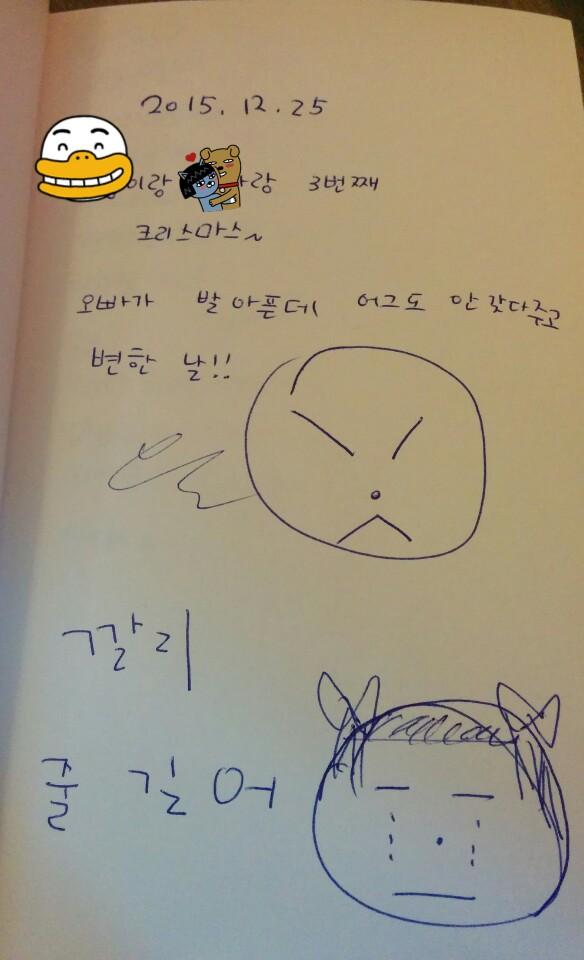 2015. 12. 25
이랑 랑 3번째
크리스마스~
오빠가 발 아픈데 어그도 안 갖다주고
변한 날!!
ㄱ깔리
줄 길어